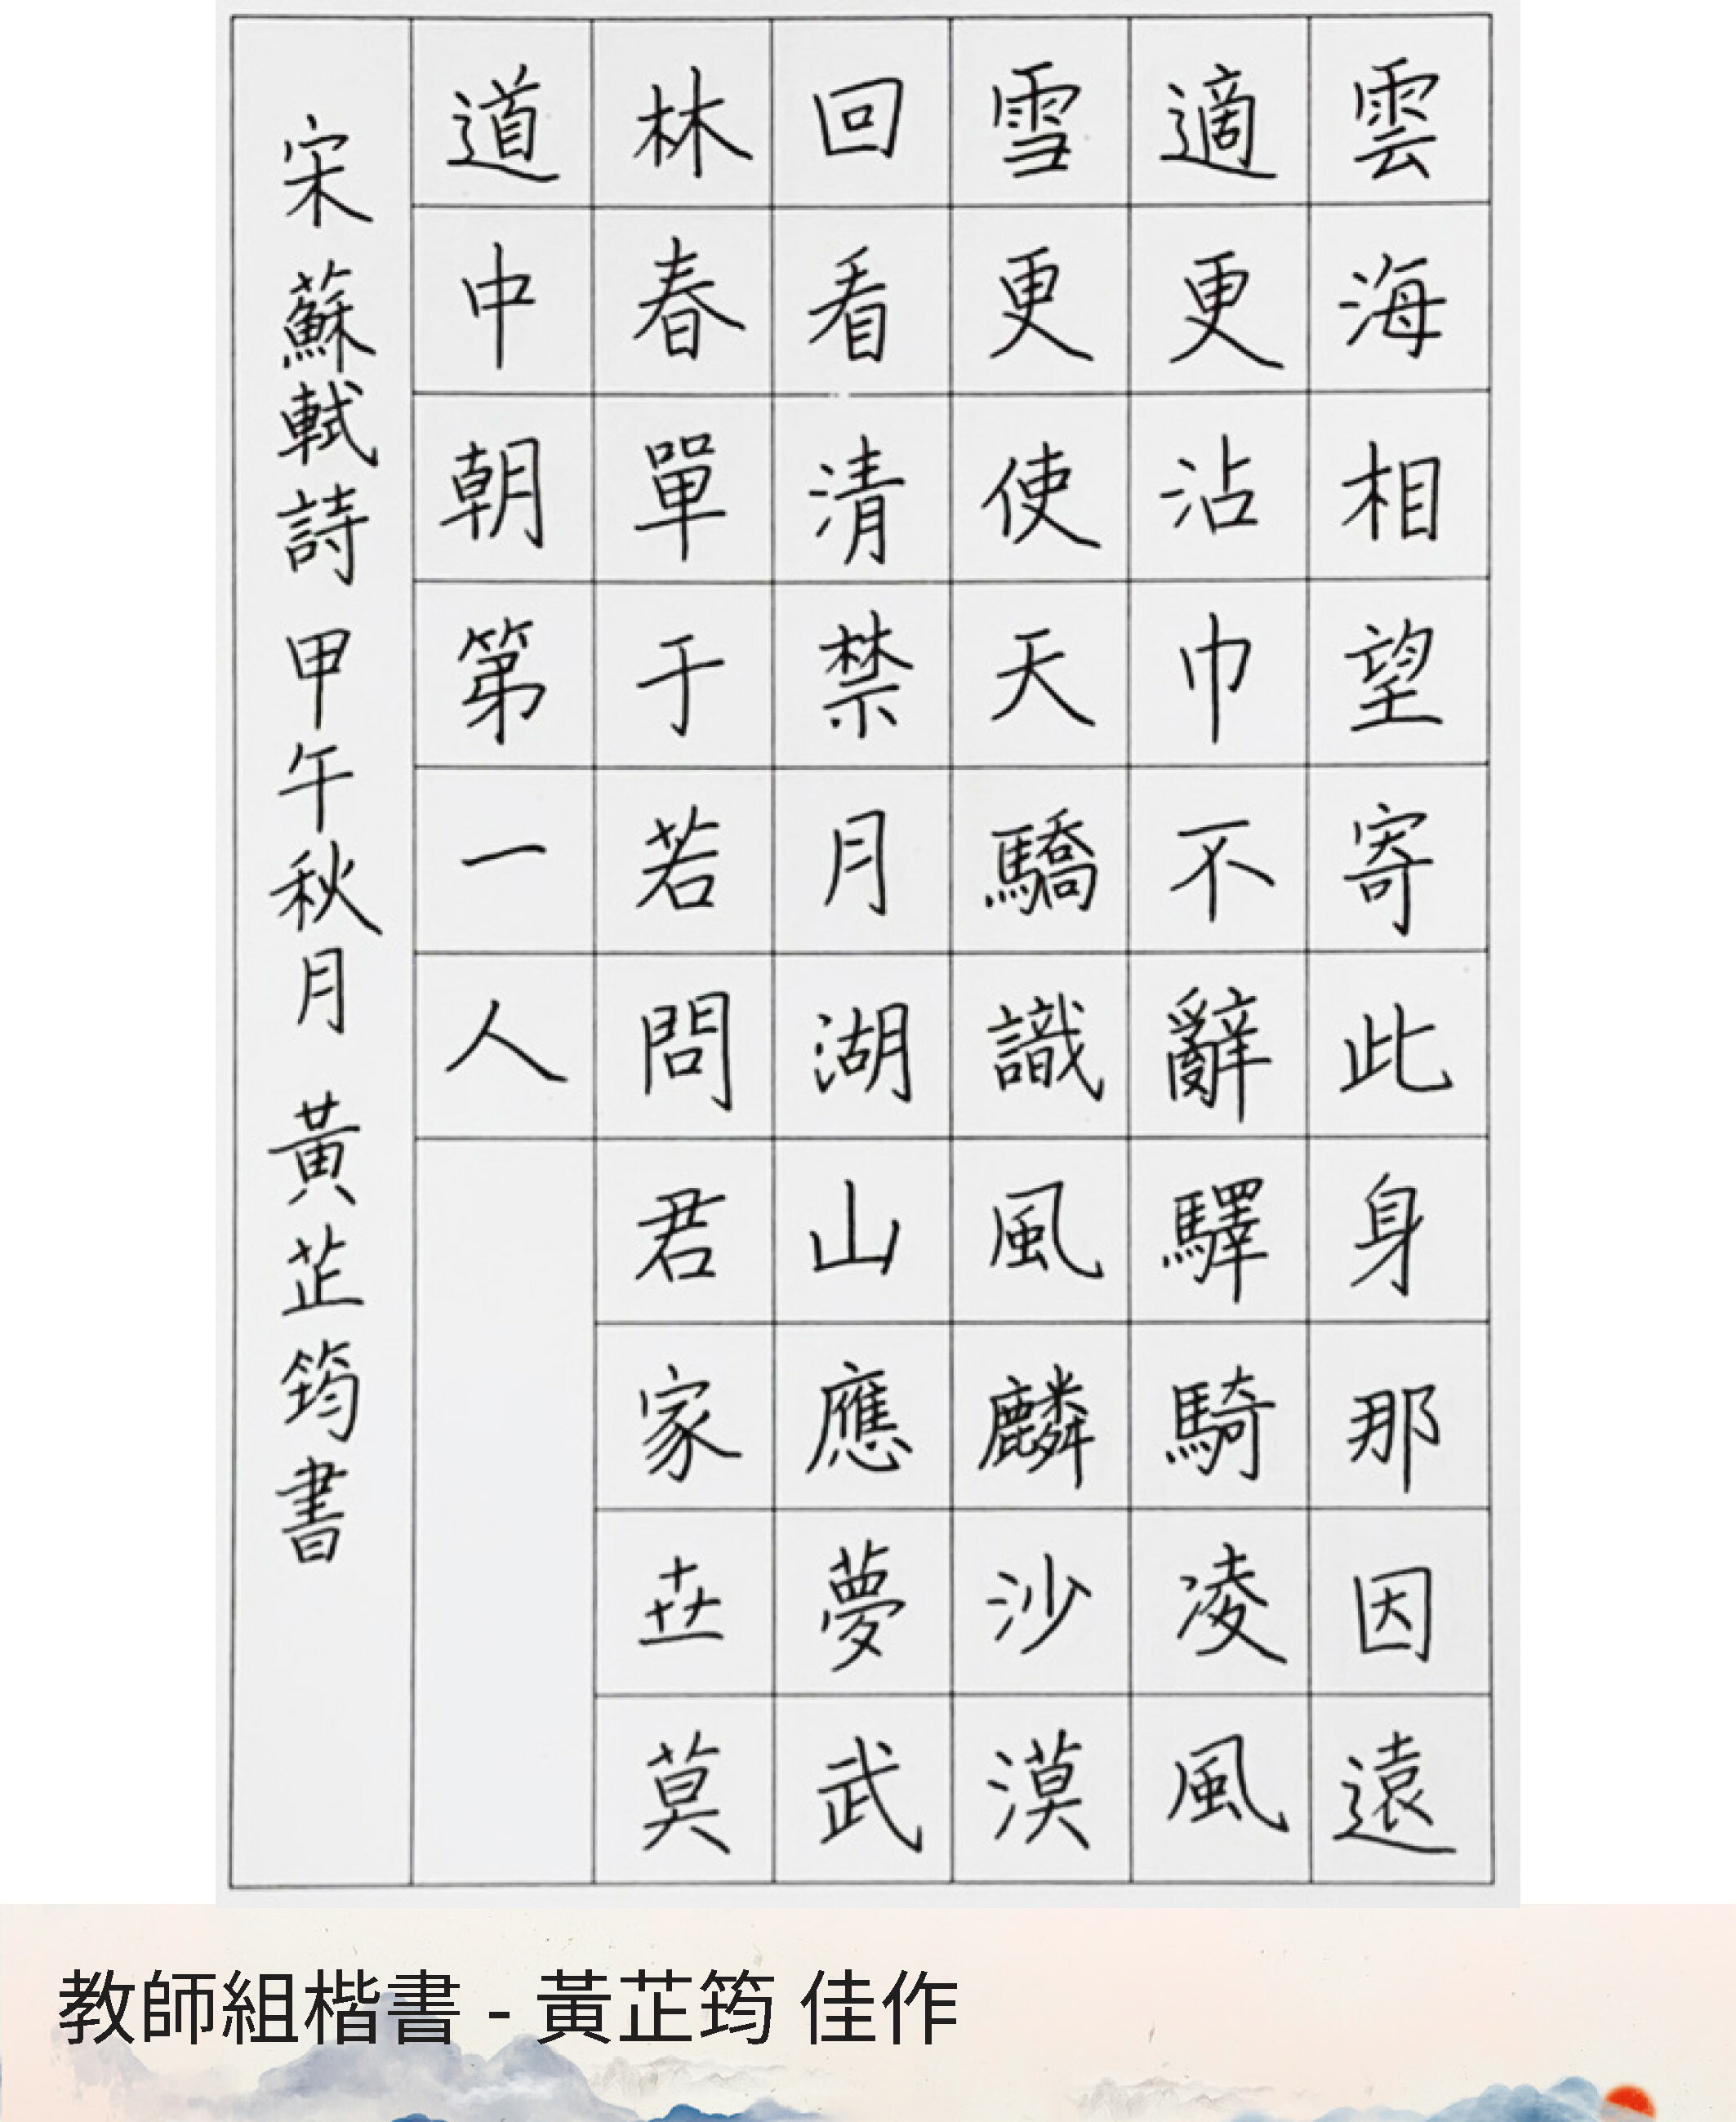 雲海相望寄此身那因遠
適更沾巾不辭驛騎凌風
雪更使天驕識風麟沙漠
回看清禁月湖山應夢武
林春單于若問君家卋莫
道中朝第一人
宋 蘇軾詩 甲午秋月 黃芷筠書
教師組楷書 - 黃芷筠 佳作